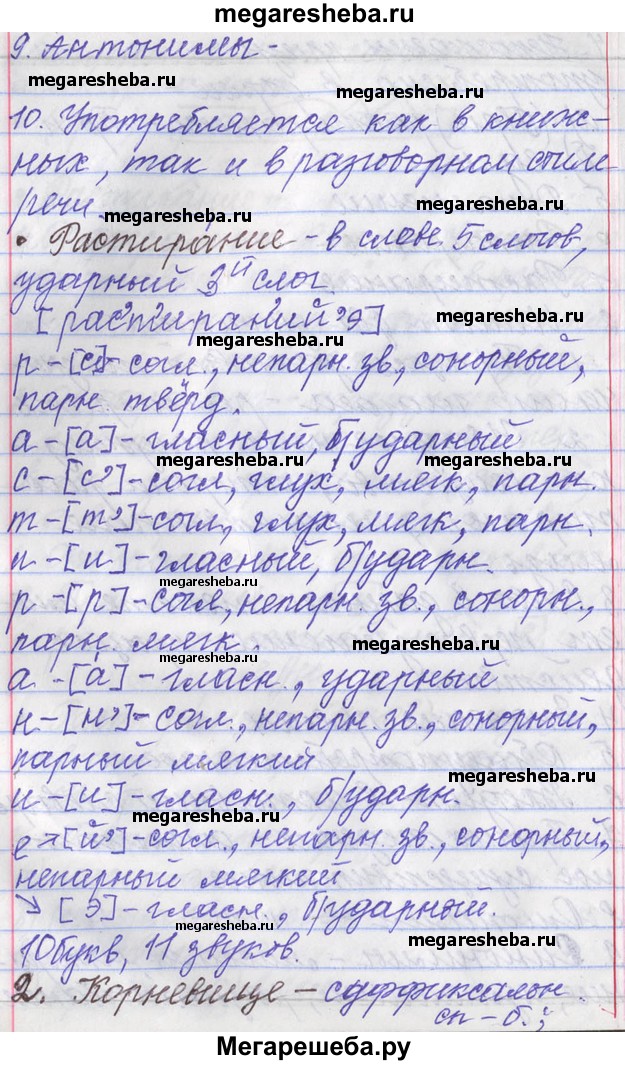 megaresheba.ru
9. Антонимы -
megaresheba.ru
megaresheba.ru
10. Употребляется как в книж-
ных, так и в разговорном стиле
megaresheba.ru
речи.
megaresheba.ru
• Растирание - в слове 5 слогов,
ударный 3ий слог.
[рас'т'иран'ий'э]
megaresheba.ru
р - [с] - согл., непарн. зв., сонорный,
парн. твёрд.
megaresheba.ru
а - [а] - гласный, б/ударный
megaresheba.ru
megaresheba.ru
с - [с'] - согл, глух, мягк, парн.
т - [т'] - согл, глух, мягк, парн.
и - [и] - гласный, б/ударн.
megaresheba.ru
р - [р] - согл, непарн. зв., сонорн.,
парн. мягк.
megaresheba.ru
megaresheba.ru
а - [а́] - гласн., ударный
н - [н'] - согл., непарн. зв., сонорный,
парный мягкий
megaresheba.ru
и - [и] - гласн., б/ударн.
megaresheba.ru
е → [й'] - согл., непарн. зв., сонорный,
непарный мягкий
↘ [э] - гласн., б/ударный.
megaresheba.ru
10 букв, 11 звуков.
megaresheba.ru
2. Корневище - суффиксальн.
сп-б.;
Мегарешеба.ру